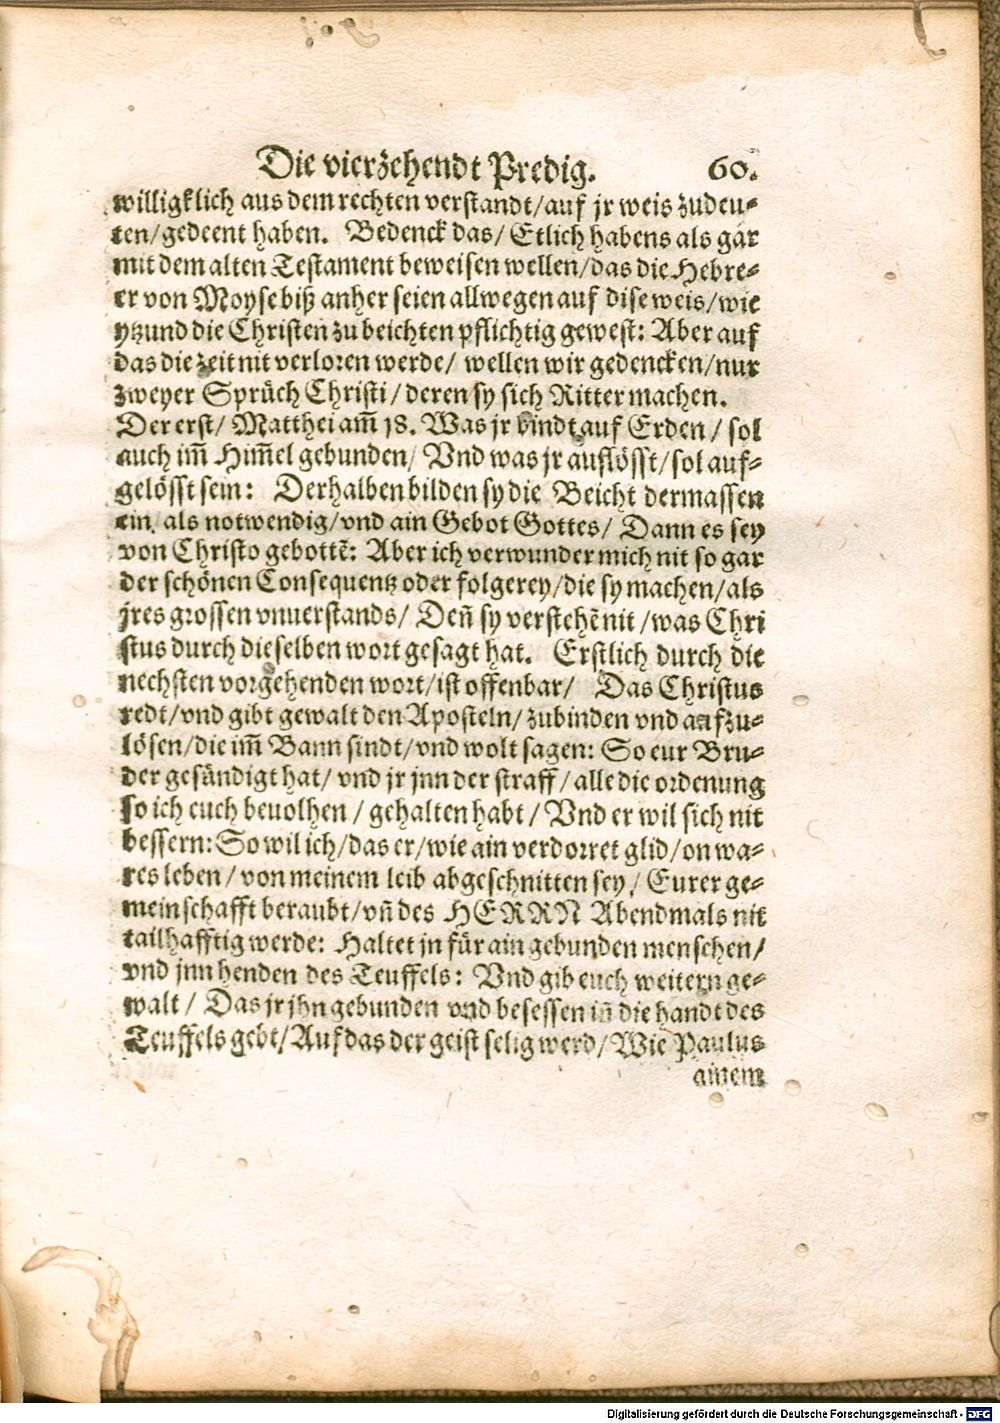 Die vierzehendt Predig. 60.
willigklich aus dem rechten verstandt/auf jr weis zudeu-
ten/gedeent haben. Bedenck das/ Etlich habens als gar
mit dem alten Testament beweisen wellen/das die Hebre-
er von Moyse biß anher seien allwegen auf dise weis/wie
ytzund die Christen zu beichten pflichtig gewest: Aber auf
das die zeit nit verloren werde/ wellen wir gedencken/nur
zweyer Sprüch Christi/deren sy sich Ritter machen.
Der erst/ Matthei am̃ 18. Was jr bindt auf Erden/ sol
auch im̃ Him̃el gebunden/ Vnd was jr auflösst/sol auf-
gelösst sein: Derhalben bilden sy die Beicht dermassen
ein, als notwendig/vnd ain Gebot Gottes/ Dann es sey
von Christo gebottẽ: Aber ich verwunder mich nit so gar
der schönen Consequentz oder folgerey/die sy machen/als
jres grossen vnuerstands/ Deñ sy verstehẽ nit/was Chri
stus durch dieselben wort gesagt hat. Erstlich durch die
nechsten vorgehenden wort/ist offenbar/ Das Christus
redt/vnd gibt gewalt den Aposteln/zubinden vnd aufzu-
lösen/die im̃ Bann sindt/vnd wolt sagen: So eur Bru-
der gesündigt hat/ vnd jr jnn der straff/alle die ordenung
so ich euch beuolhen/ gehalten habt/ Vnd er wil sich nit
bessern: So wil ich/das er/wie ain verdorret glid/on wa-
res leben/von meinem leib abgeschnitten sey/ Eurer ge-
meinschafft beraubt/vñ des HERRN Abendmals nit
tailhafftig werde: Haltet jn für ain gebunden menschen/
vnd jnn henden des Teuffels: Vnd gib euch weitern ge-
walt/ Das jr jhn gebunden vnd besessen iñ die handt des
Teuffels gebt/Auf das der geist selig werd/ Wie Paulus
ainem
Digitalisierung gefördert durch die Deutsche Forschungsgemeinschaft - DFG